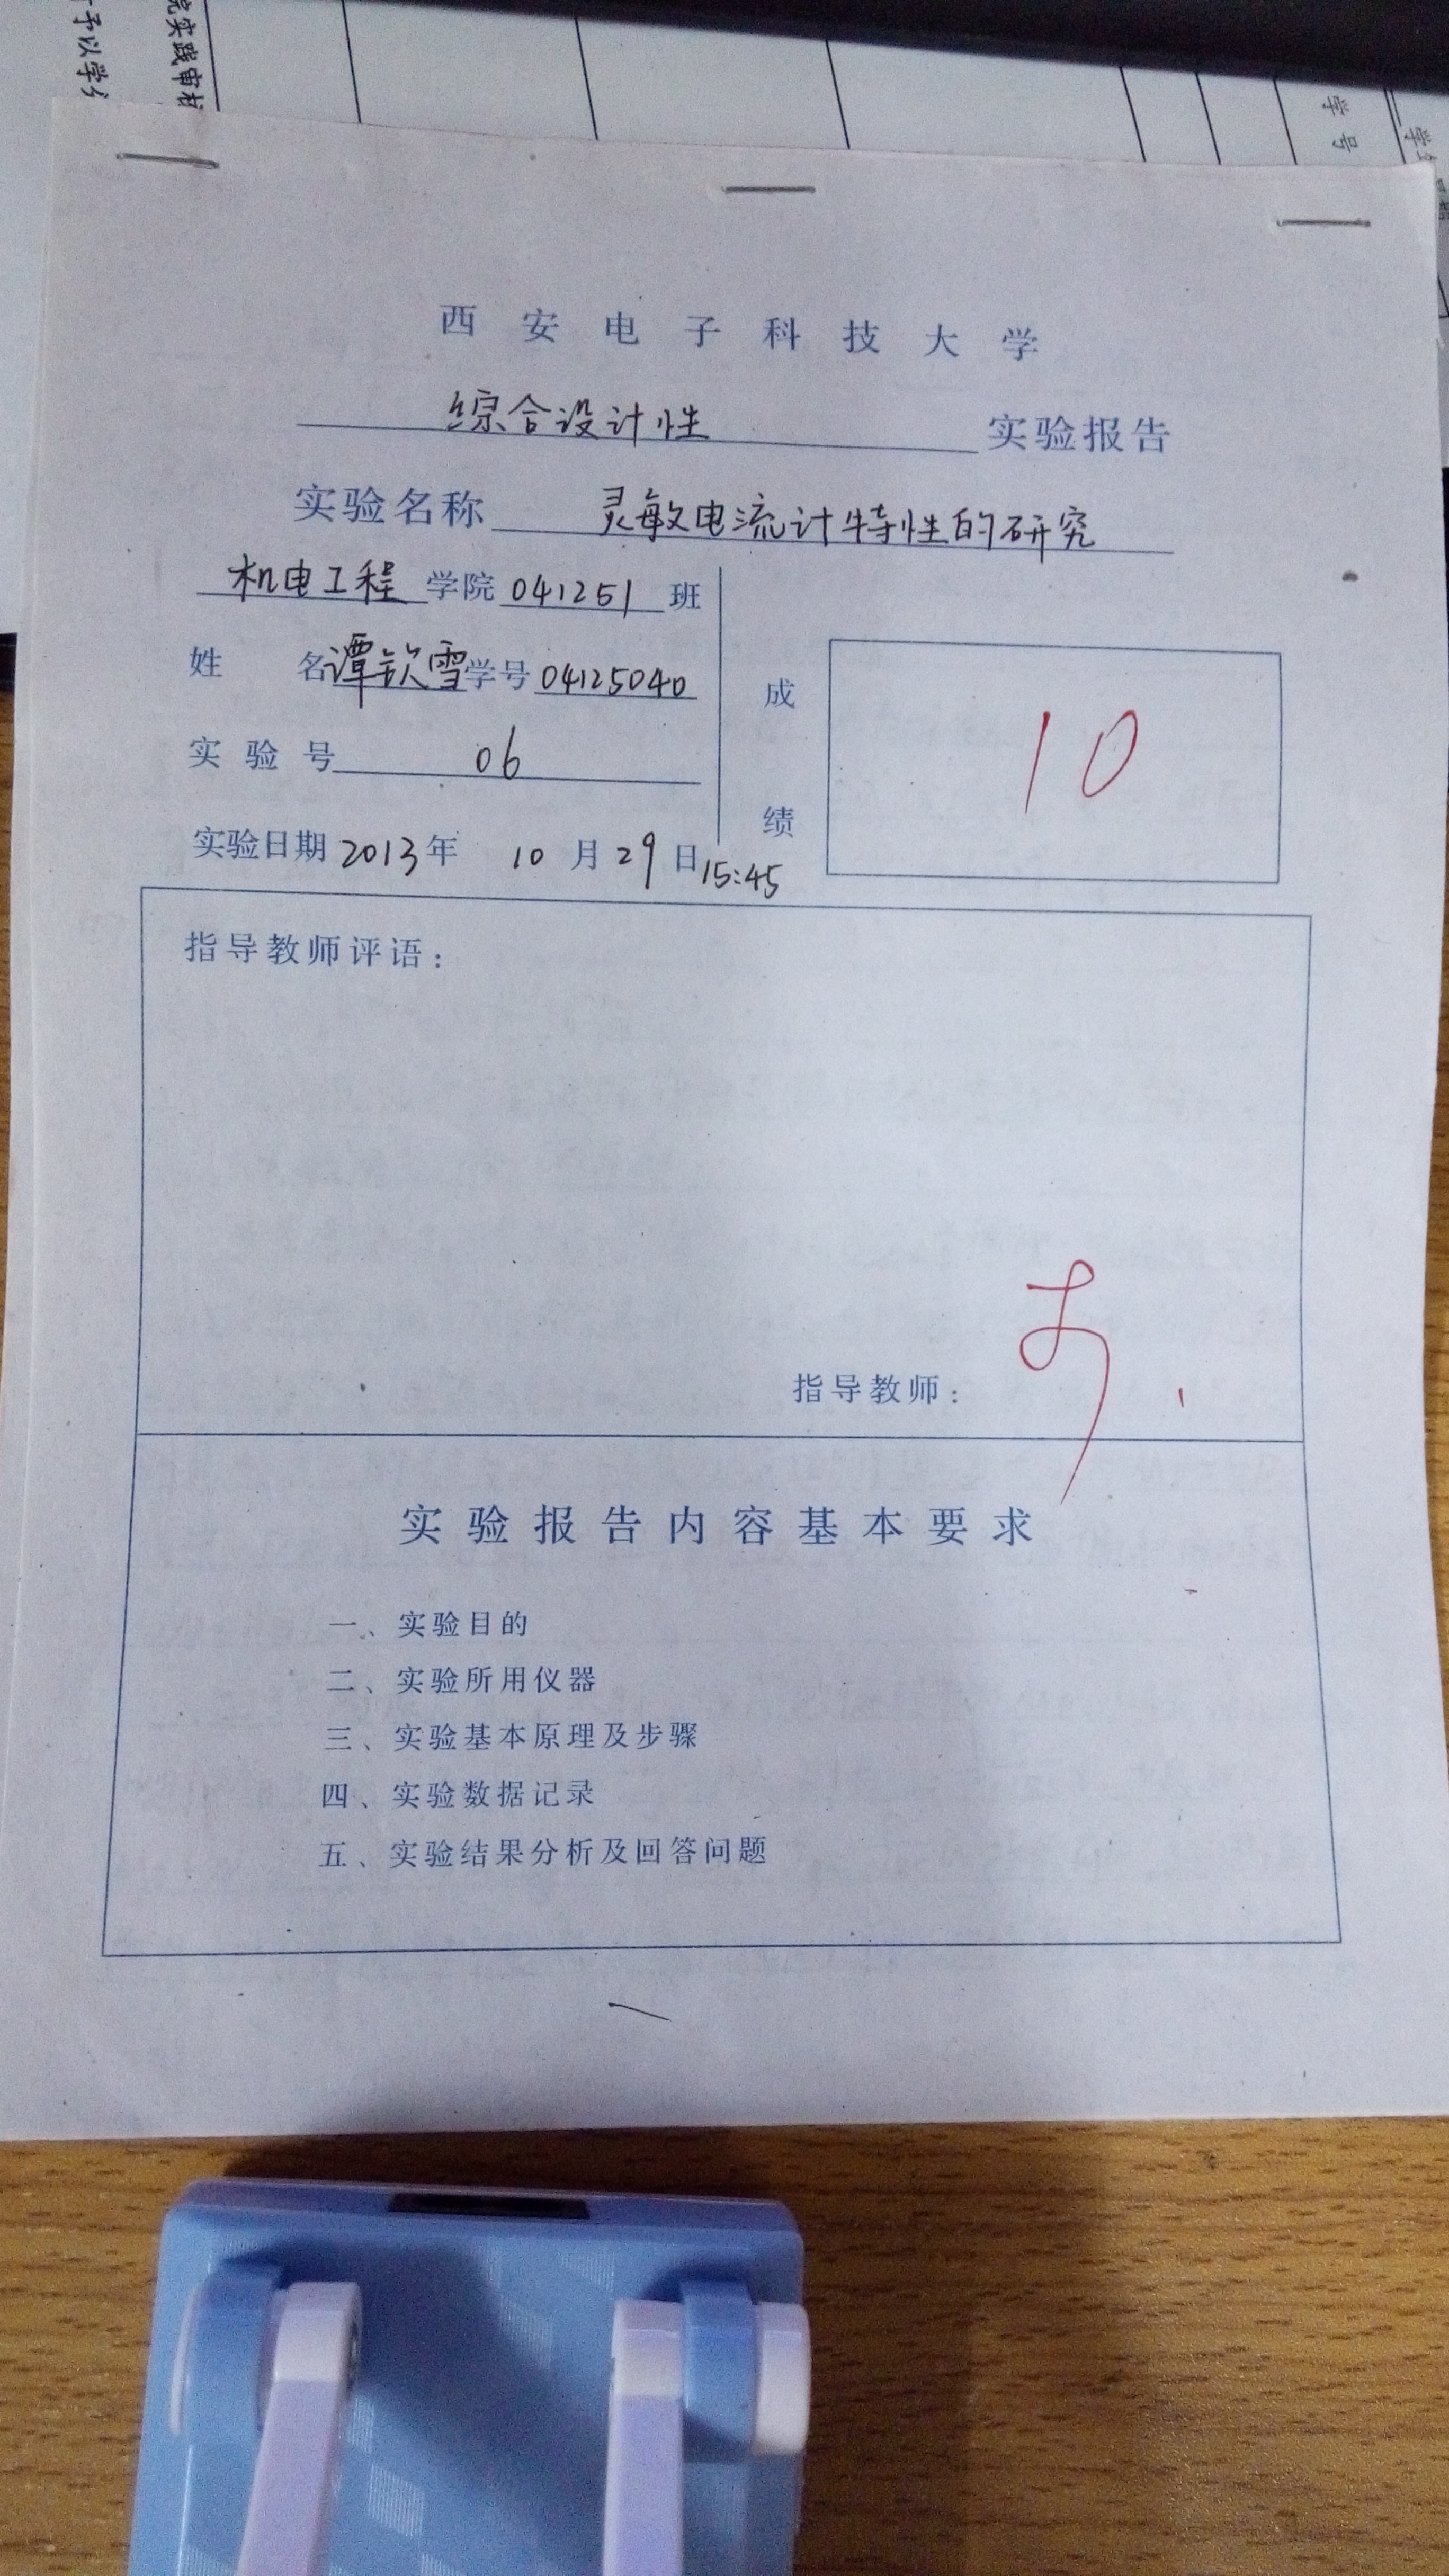 予以学
院实践审
学号
西安电子科技大学
综合设计性 实验报告
实验名称 灵敏电流计特性的研究
机电工程 学院 041251 班
姓 名 谭钦雪 学号 04125040
实验号 06
实验日期 2013年 10月29日 15:45
成绩
10
指导教师评语：
指导教师：
实验报告内容基本要求
一、实验目的
二、实验所用仪器
三、实验基本原理及步骤
四、实验数据记录
五、实验结果分析及回答问题